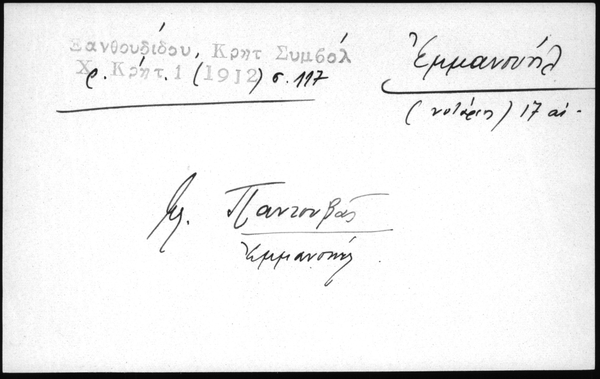 Ξανθουδίδου, Κρητ Συμβόλ
Χρ. Κρήτ. 1 (1912) σ. 117
Ἐμμανουήλ
(νοτάριος) 17 αἰ.
βλ. Παντουβᾶς
Ἐμμανουήλ